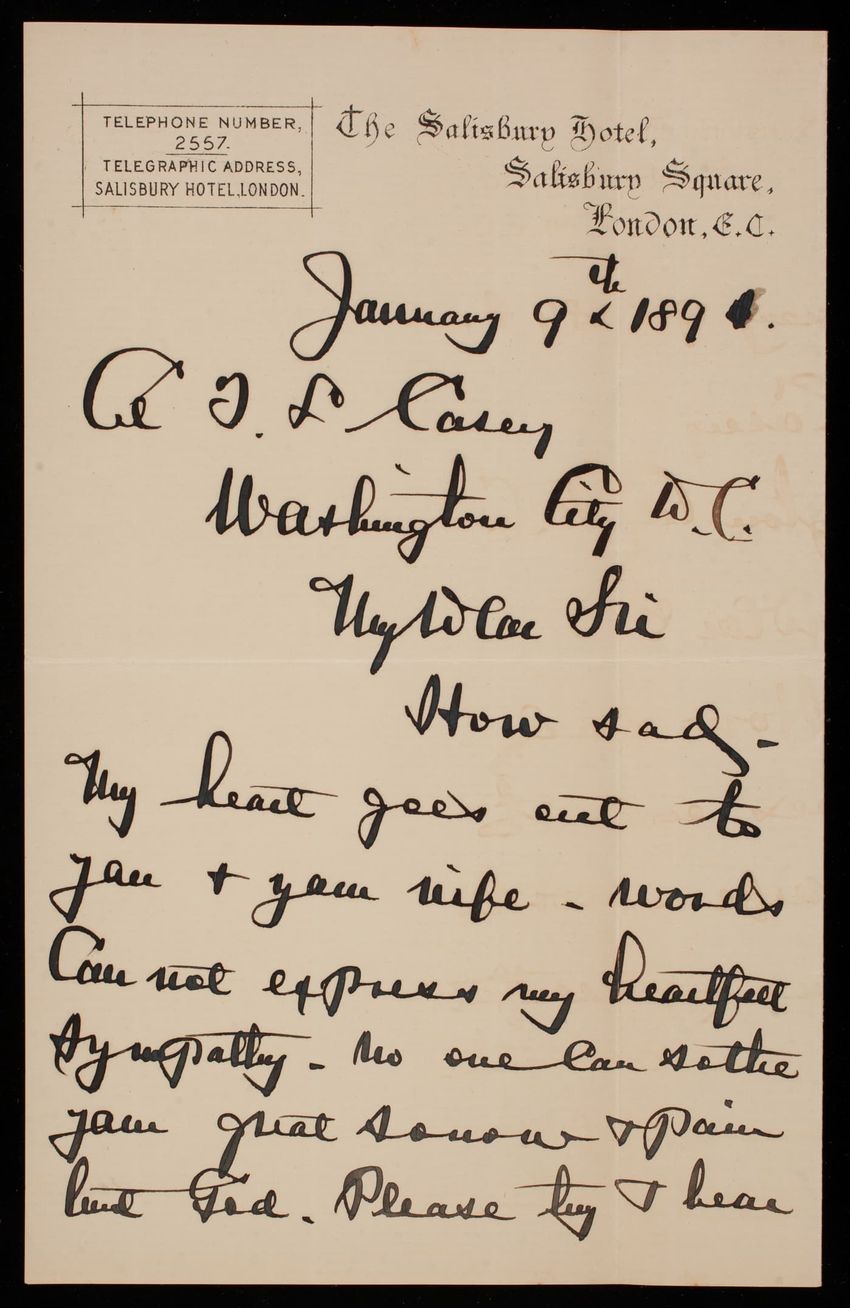 TELEPHONE NUMBER,
2557.
TELEGRAPHIC ADDRESS,
SALISBURY HOTEL, LONDON.
The Salisbury Hotel,
Salisbury Square,
London, E.C.
January 9th 189
T. L Casey
Washington City D.C.
My Dear Sir
How sad -
My heart goes out to
you + your wife - words
Can not express my heartfelt
sympathy - No one can sothe
your great sorrow + pain
but God. Please try + bear